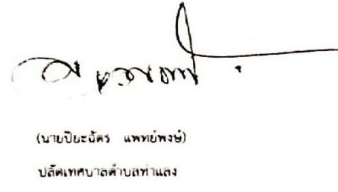 (นายปิยะฉัตร แพทย์พงษ์)
ปลัดเทศบาลตำบลท่าแลง